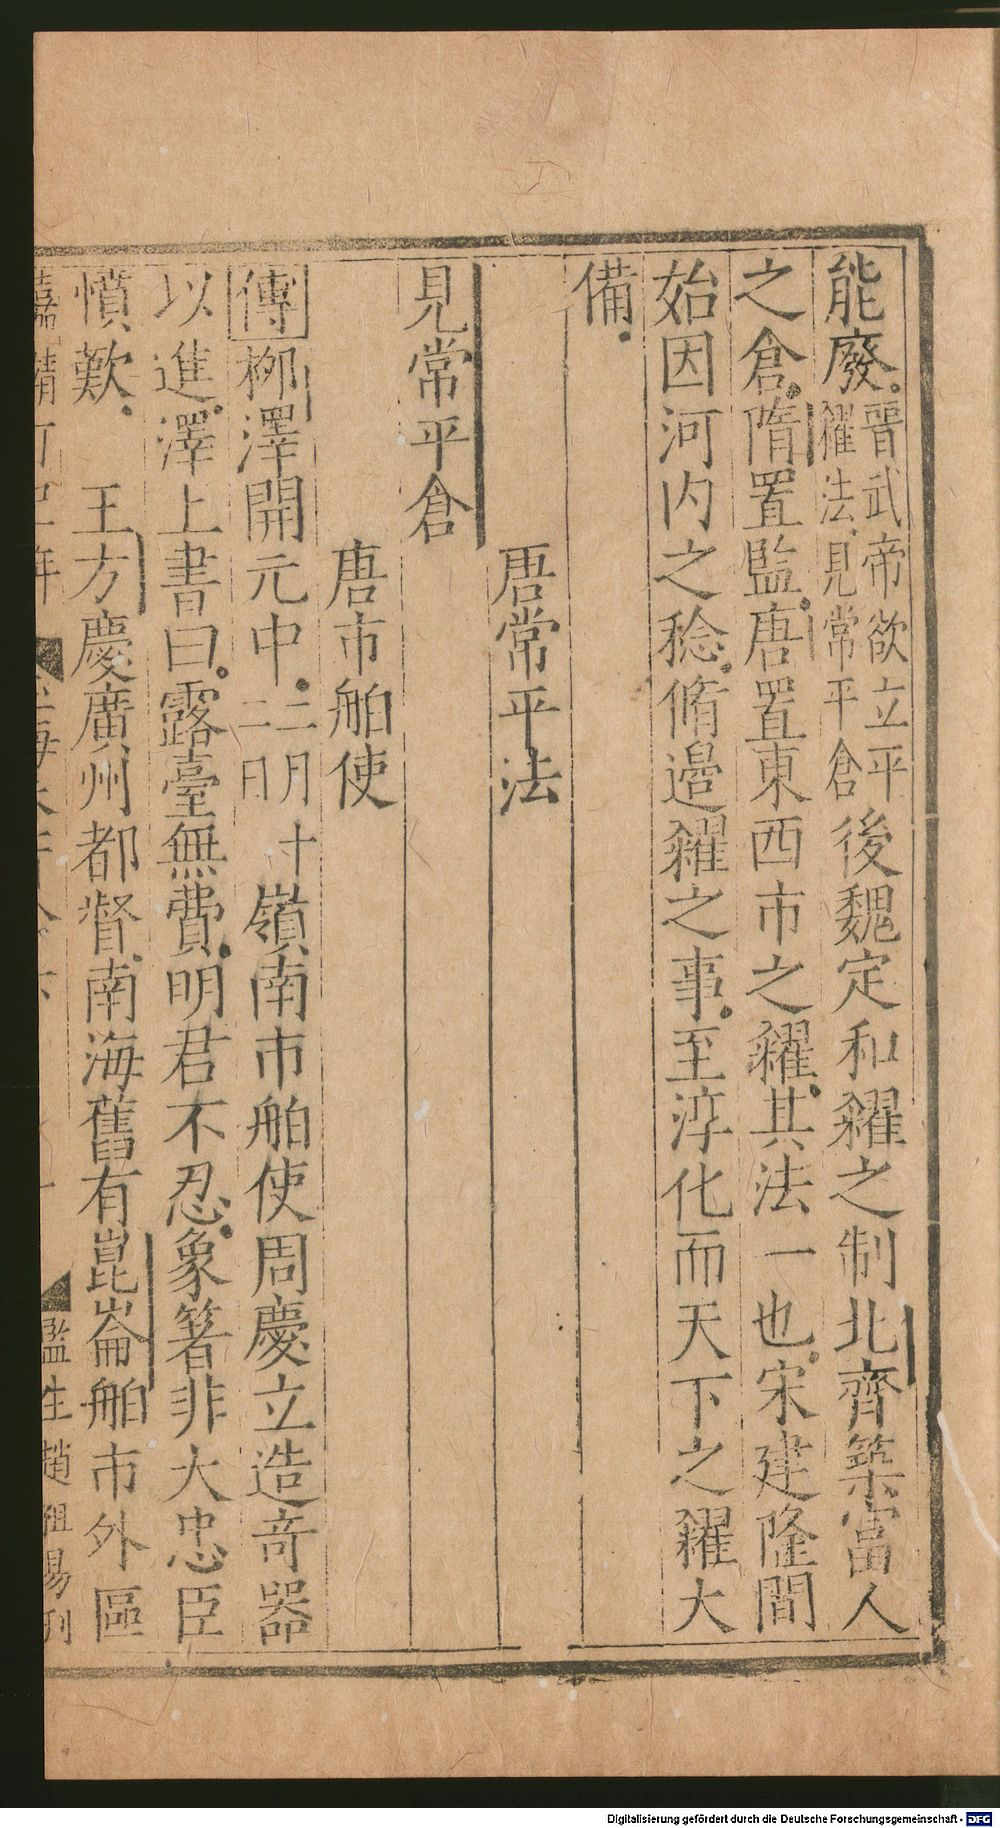 能廢晉武帝欲立平糴法見常平倉後魏定和糴之制北齊築富人
之倉隋置監唐置東西市之糴其法一也宋建隆間
始因河内之稔脩邉糴之事至淳化而天下之糴大
備
唐常平法
見常平倉
唐市舶使
傳栁澤開元中二月十二日嶺南市舶使周慶立造竒器
以進澤上書曰露臺無費明君不忍象箸非大忠臣
憤歎 王方慶廣州都督南海舊有崑崙舶市外區
嘉靖丁巳年
監生趙祖易刊
Digitalisierung gefördert durch die Deutsche Forschungsgemeinschaft - DFG